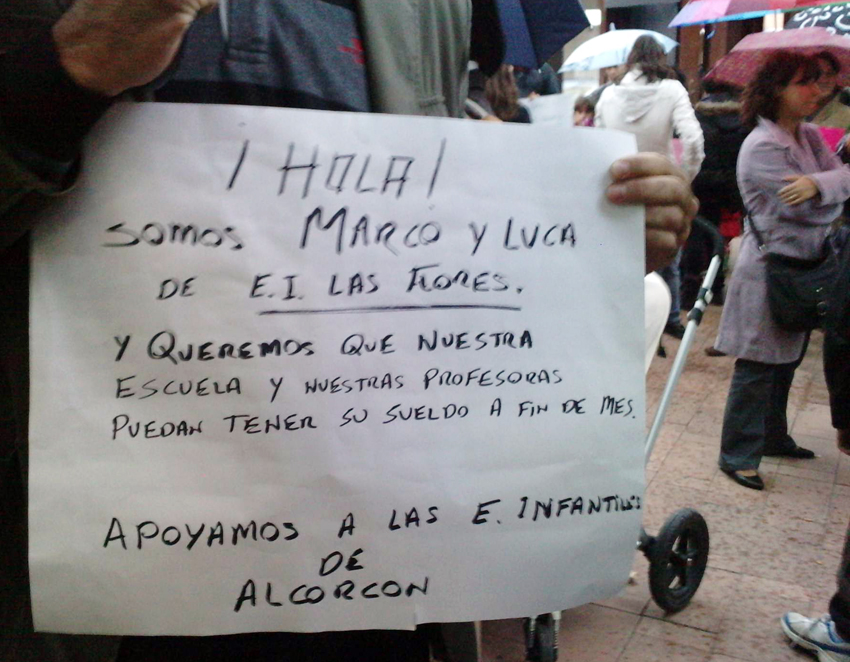 ¡HOLA!
SOMOS MARCO Y LUCA
DE E.I. LAS FLORES.
Y QUEREMOS QUE NUESTRA
ESCUELA Y NUESTRAS PROFESORAS
PUEDAN TENER SU SUELDO A FIN DE MES.
APOYAMOS A LAS E. INFANTILES
DE
ALCORCON